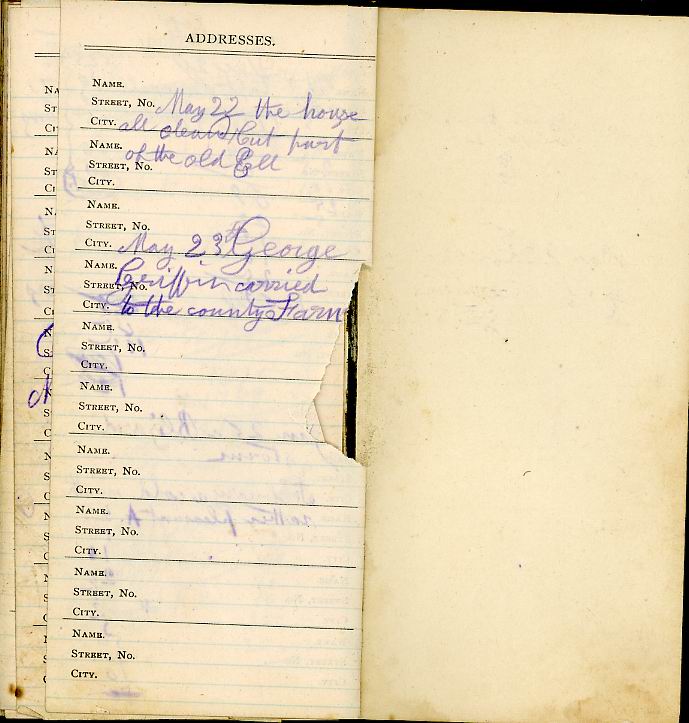 ADDRESSES.
NAME.
STREET, NO. May 22 the house
CITY. all clean but part
NAME. of the old Ell
STREET, NO.
CITY.
NAME.
STREET, NO.
CITY. May 23 George
NAME.
STREET, NO. Griffin carried
CITY. to the county Farm
NAME.
STREET, NO.
CITY.
NAME.
STREET, NO.
CITY.
NAME.
STREET, NO.
CITY.
NAME.
STREET, NO.
CITY.
NAME.
STREET, NO.
CITY.
NAME.
STREET, NO.
CITY.